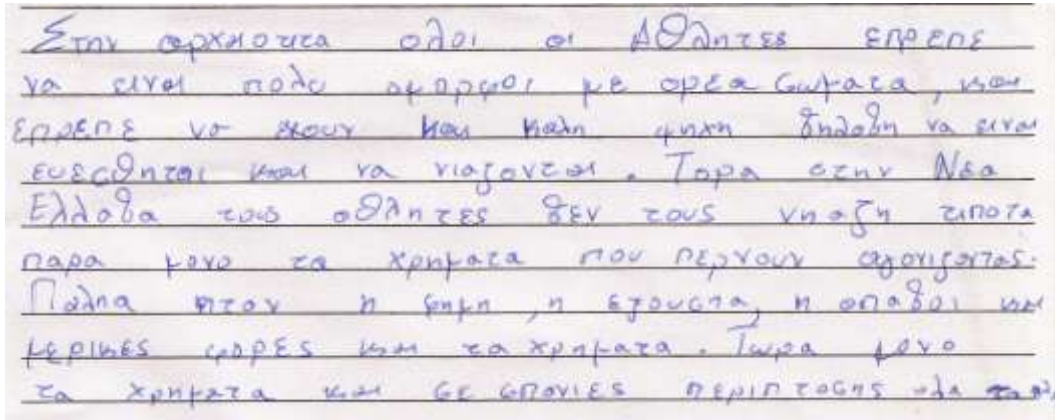 Στην αρχαιοτιτα ολοι οι Αθλητες επρεπε
να ειναι πολυ ομορφοι με ορεα σωματα, και
επρεπε να εχουν και καλη ψηχη δηλαδη να ειναι
ευεσθητοι και να νιαζονται. Τορα στην Νεα
Ελλαδα τους αθλητες δεν τους νηαζη τιποτα
παρα μονο τα χρηματα που περνουν αγονιζοντας.
Παληα ηταν η φημη, η εξουσια, η οπαδοι και
μερικες φορες και τα χρηματα. Τωρα μονο
τα χρηματα και σε σπανιες περιπτοσης ολα